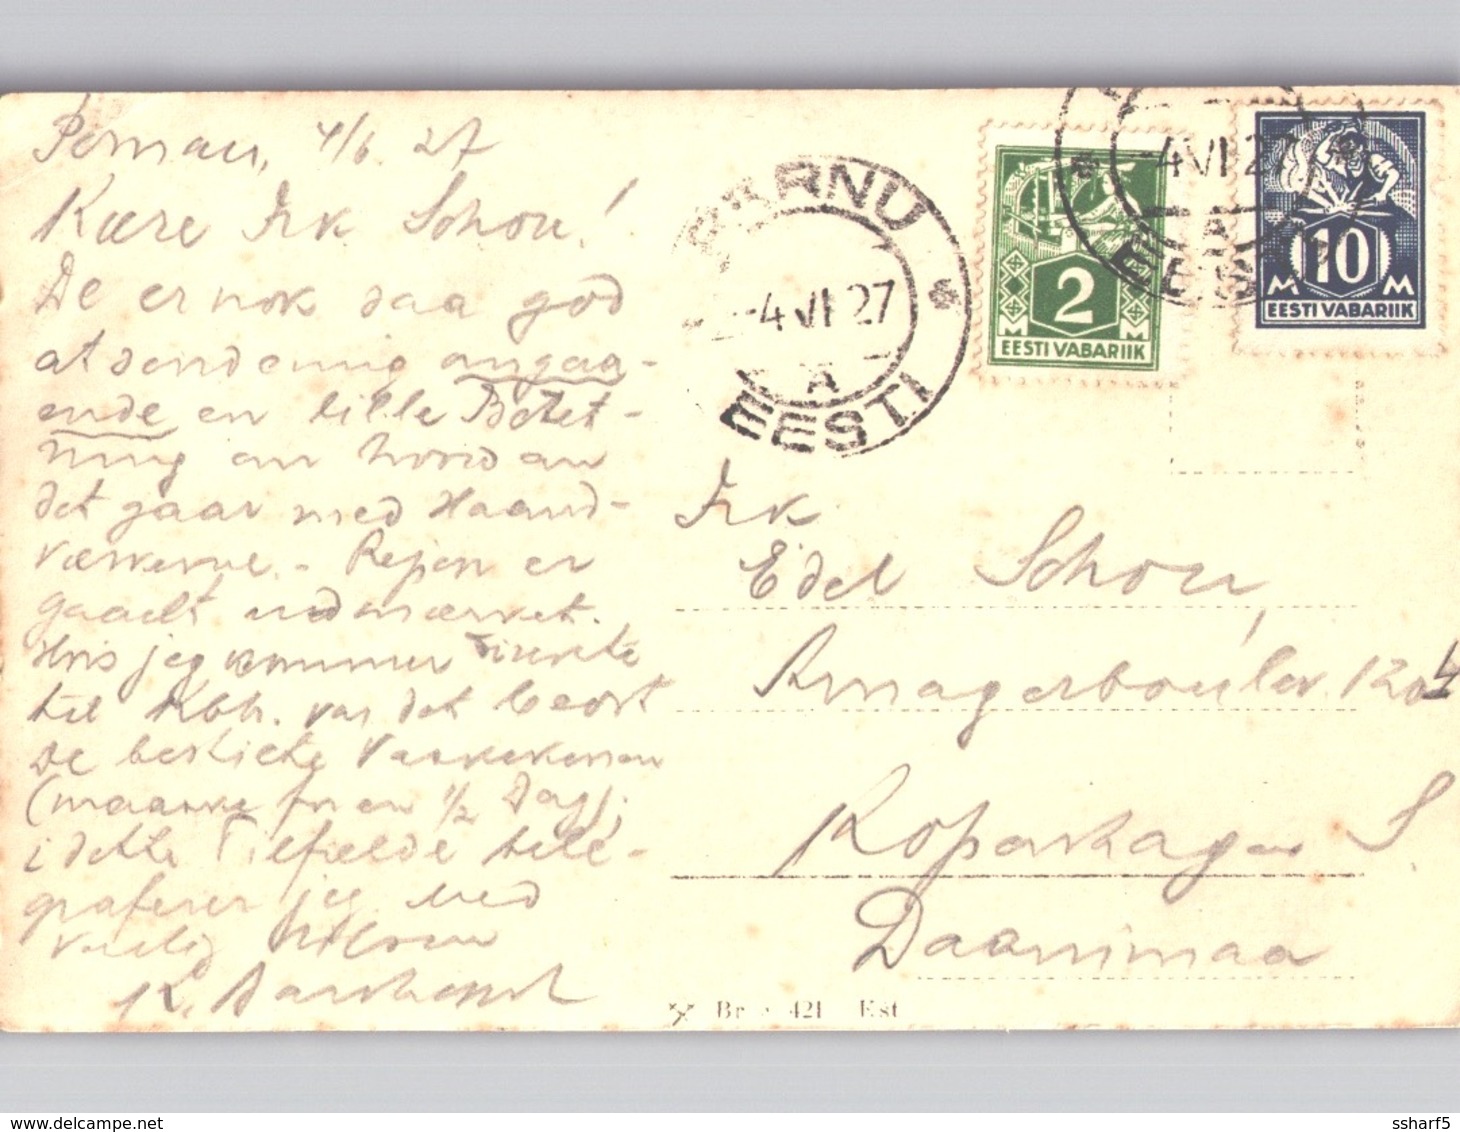 Pernau, 4/6 27
Kære Frk Schou!
De er nok saa god
at sende mig angaa-
ende en lille Beret-
ning om hvordan
det gaar med Haand-
værkerne. - Rejsen er
gaaet udmærket.
Hvis jeg kommer direkte
til Kbh. var det bedst
De bestilte Vaskekonen
(maaske for en 1/2 Dag);
i dette Tilfælde tele-
graferer jeg. Med
venlig Hilsen
K.
PÄRNU
-4 VI 27
A
EESTI
2
M M
EESTI VABARIIK
-4 VI 27
A
EESTI
10
M M
EESTI VABARIIK
Frk
Edel Schou,
Amagerboulev. 120 4
Kopenhagen S
Daanimaa
Br 421 Est
ssharf5